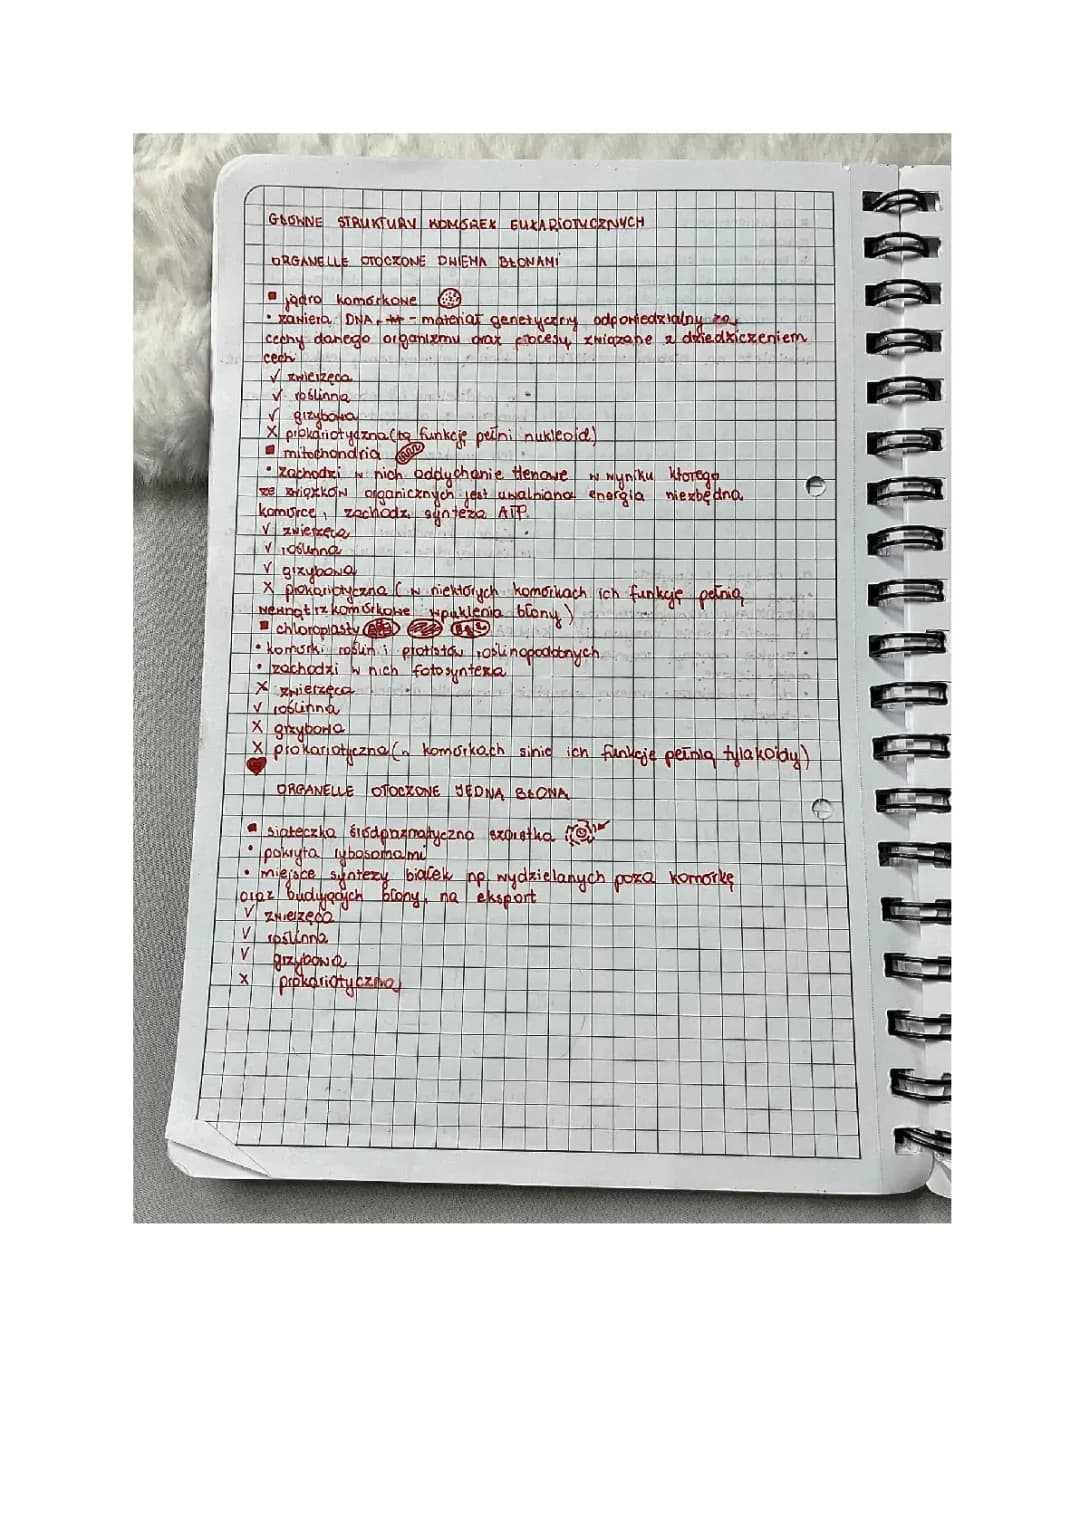 GŁÓWNE STRUKTURY KOMÓREK EUKARIOTYCZNYCH
ORGANELLE OTOCZONE DWIEMA BŁONAMI
▪ jądro komórkowe
• zawiera DNA - materiał genetyczny odpowiedzialny za
cechy danego organizmu oraz procesy związane z dziedziczeniem
cech
✓ zwierzęca
✓ roślinna
✓ grzybowa
X prokariotyczna (tą funkcję pełni nukleoid)
▪ mitochondria
• zachodzi w nich oddychanie tlenowe w wyniku którego
ze związków organicznych jest uwalniana energia niezbędna
komórce, zachodzi synteza ATP.
✓ zwierzęca
✓ roślinna
✓ grzybowa
X prokariotyczna (w niektórych komórkach ich funkcję pełnią
wewnątrzkomórkowe wpuklenia błony)
▪ chloroplasty
• komórki roślin i protistów roślinopodobnych
• zachodzi w nich fotosynteza
X zwierzęca
✓ roślinna
X grzybowa
X prokariotyczna (w komórkach sinic ich funkcję pełnią tylakoidy)
ORGANELLE OTOCZONE JEDNĄ BŁONĄ
▪ siateczka śródplazmatyczna szorstka
• pokryta rybosomami
• miejsce syntezy białek np. wydzielanych poza komórkę
oraz budujących błony, na eksport
✓ zwierzęca
✓ roślinna
✓ grzybowa
X prokariotyczna